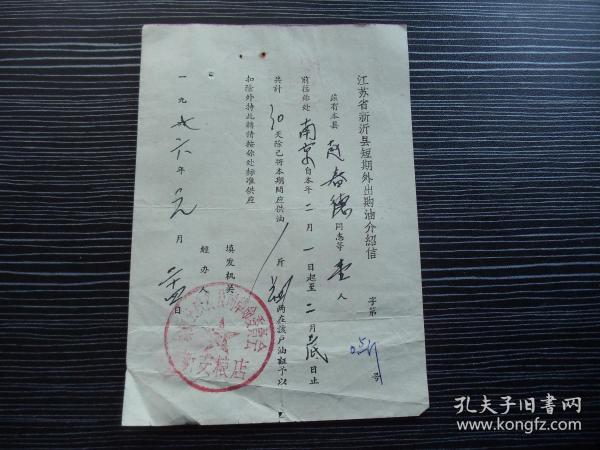 江苏省新沂县短期外出购油介绍信
字第 051 号
兹有本县 赵春德 同志等 壹 人
前往你处 南京 自本年 二 月 1 日起至 二 月 底 日止
共计 30 天除已将本期间应供油 斤 两在该户油证予以
扣除外特此转请按你处标准供应
填发机关
经办人
一九七六年 元 月 日
安粮店
孔夫子旧书网
www.kongfz.com